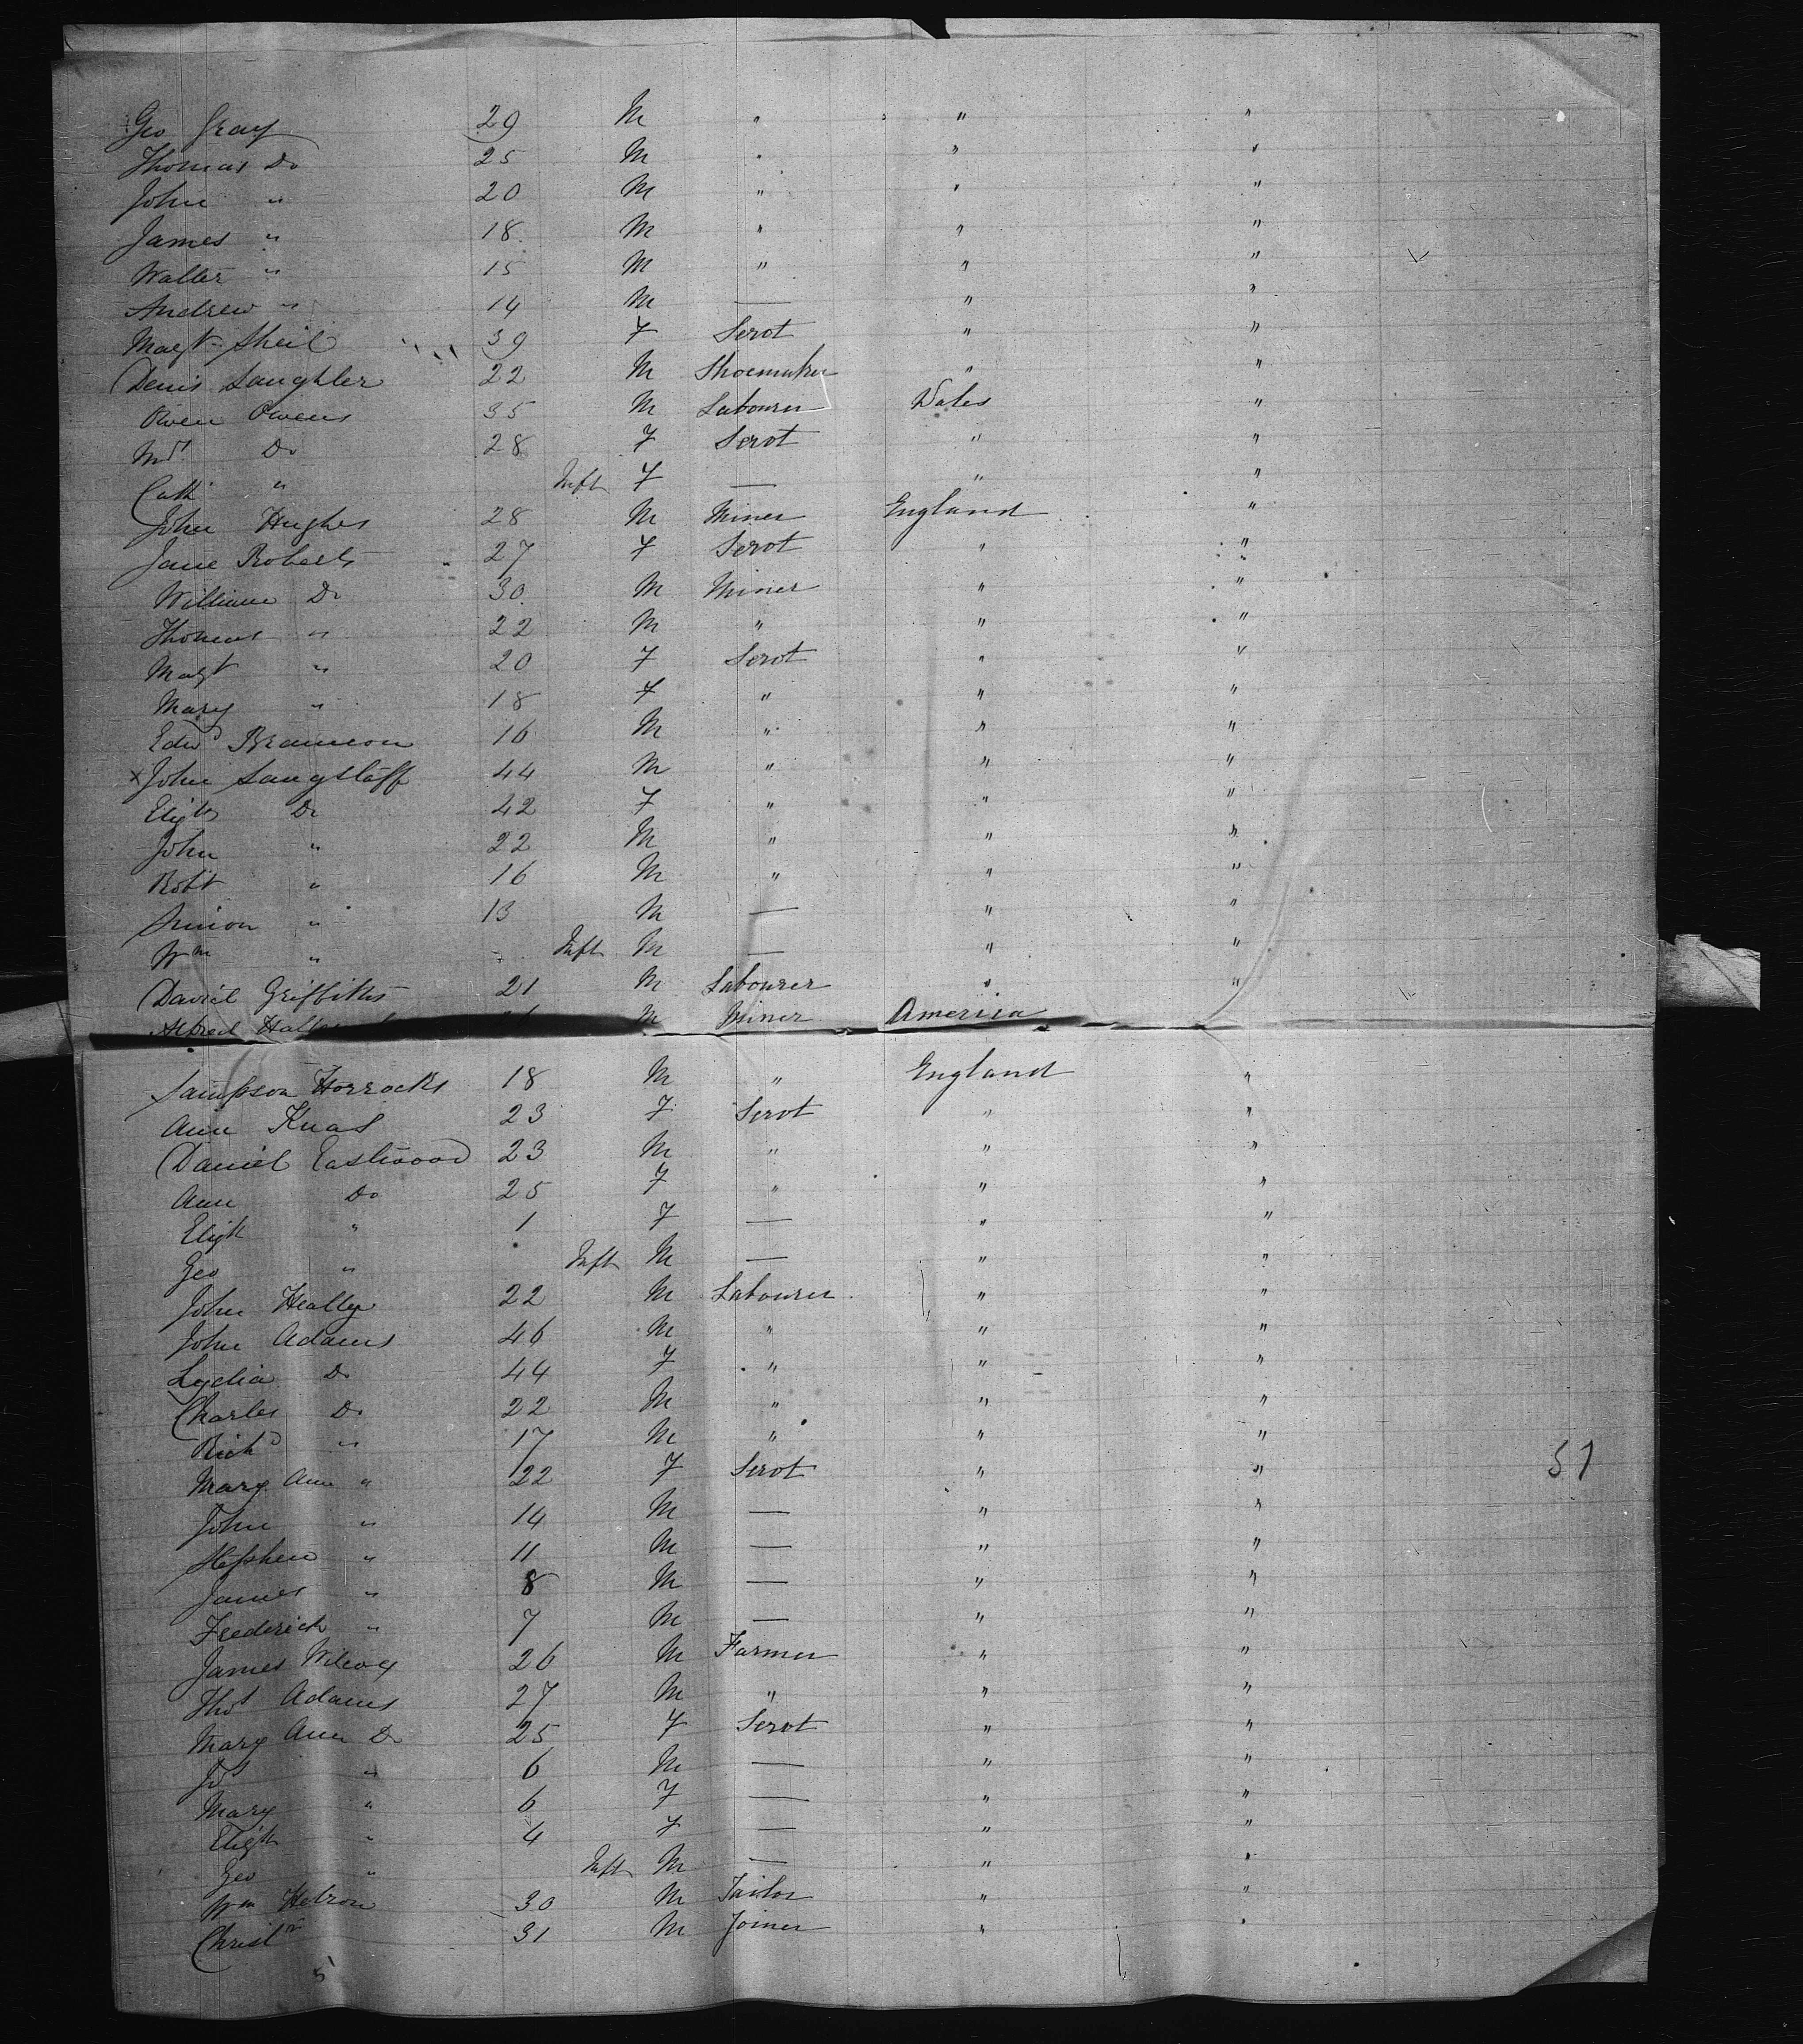 Geo Gray 29 M " " "
Thomas Do 25 M " " "
John " 20 M " " "
James " 18 M " " "
Walter " 15 M " " "
Andrew " 14 M — " "
Magt Sheil 39 F Servt " "
Denis Laughler 22 M Shoemaker " "
Owen Owens 35 M Labourer Wales "
Mrs Do 28 F Servt " "
Cath " Inft F — " "
John Hughes 28 M Miner England "
Jane Roberts 27 F Servt " "
William Do 30 M Miner " "
Thomas " 22 M " " "
Magt " 20 F Servt " "
Mary " 18 F " " "
Edwd Brannon 16 M " " "
x John Langstaff 44 M " " "
Elizth Do 42 F " " "
John " 22 M " " "
Robt " 16 M " " "
Simon " 13 M — " "
Wm " Inft M — " "
David Griffiths 21 M Labourer " "
Alfred M Miner America
Sampson Horrocks 18 M " England "
Ann 23 F Servt " "
Daniel Eastwood 23 M " " "
Ann Do 25 F " " "
Elizth " 1 F — " "
Geo " Inft M — " "
John Heally 22 M Labourer " "
John Adams 46 M " " "
Lydia Do 44 F " " "
Charles Do 22 M " " "
Richd " 17 M " " "
Mary Ann " 22 F Servt " " 51
John " 14 M — " "
Stephen " 11 M — " "
James " 8 M — " "
Frederick " 7 M — " "
James Wilcox 26 M Farmer " "
Thos Adams 27 M " " "
Mary Ann Do 25 F Servt " "
Js " 6 M — " "
Mary " 6 F — " "
Elizth " 4 F — " "
Geo " Inft M — " "
Wm Hebron 30 M Tailor " "
Christr 31 M Joiner " "
5